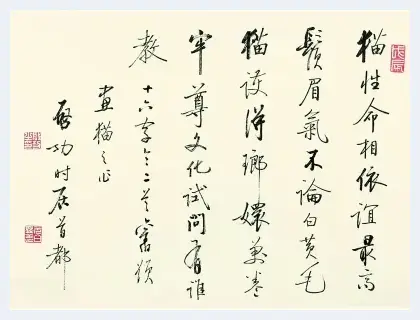 猫性命相依谊最高
鬚眉氣不論白黄毛
猫護得瑯嬛萬卷
牢尊文化試問有誰
教
十六字令二首舊題
畫猫之作
啓功时居首都